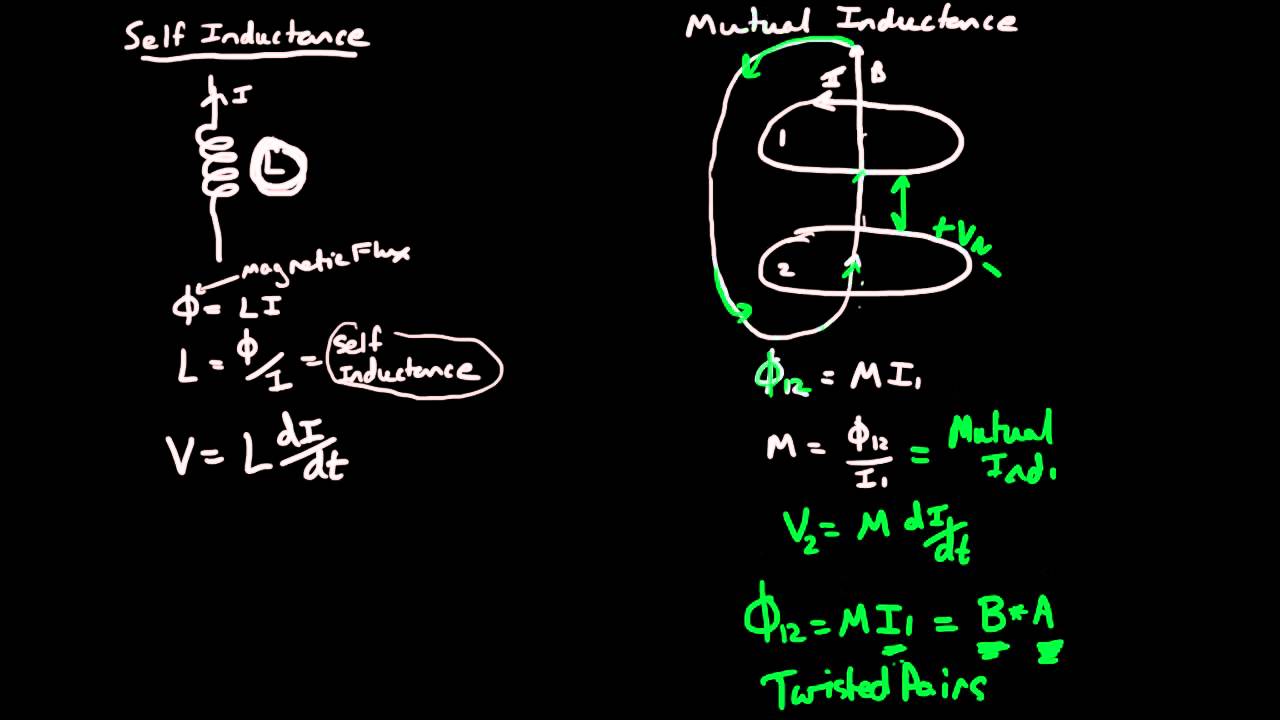 Self Inductance
I
L
magnetic Flux
Φ = LI
L = Φ/I = Self Inductance
V = L dI/dt
Mutual Inductance
I
B
1
+VN-
2
Φ12 = MI1
M = Φ12/I1 = Mutual Ind.
V2 = M dI1/dt
Φ12 = MI1 = B*A
Twisted Pairs